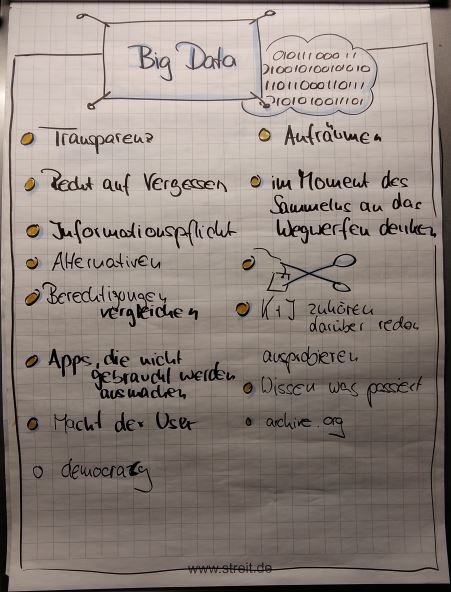 Big Data
010111 000 11
0100101001010
11011000110111
01010 10011101
Transparenz
Recht auf Vergessen
Informationspflicht
Alternativen
Berechtigungen
vergleichen
Apps, die nicht
gebraucht werden
ausmachen
Macht der User
democrazy
Aufräumen
im Moment des
Sammelns an das
Wegwerfen denken
K+J zuhören
darüber reden
ausprobieren
Wissen was passiert
archive.org
www.streit.de